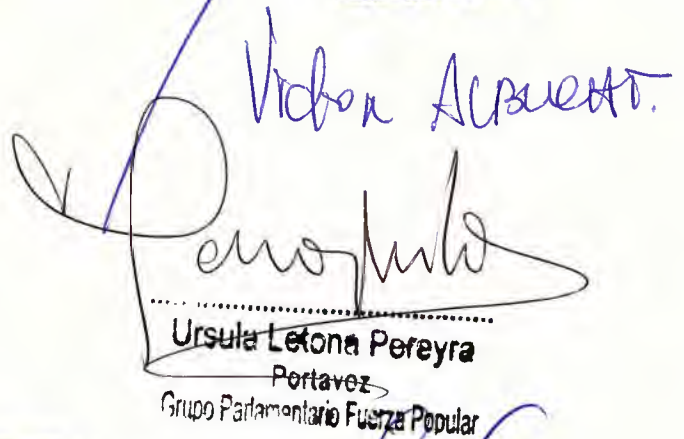 Victor ALBRECHT.
Ursula Letona Pereyra
Portavoz
Grupo Parlamentario Fuerza Popular